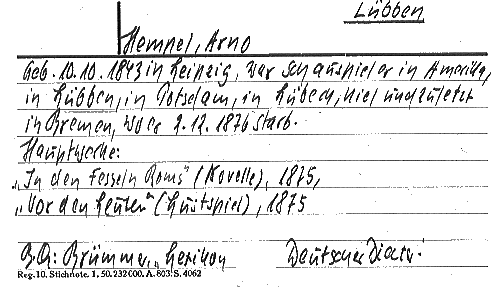 Lübben
Hempel, Arno
Geb. 10.10.1843 in Leipzig, war Schauspieler in Amerika,
in Lübben, in Potsdam, in Lübeck, Kiel und zuletzt
in Bremen, wo er 2.12.1876 starb.
Hauptwerke:
"In den Fesseln Roms" (Novelle), 1875,
"Vor den Leuten" (Lustspiel), 1875
Bq: Brümmer, Lexikon Deutscher Dicht.
Reg.10. Stichnote. 1, 50.232000. A. 803: S. 4062